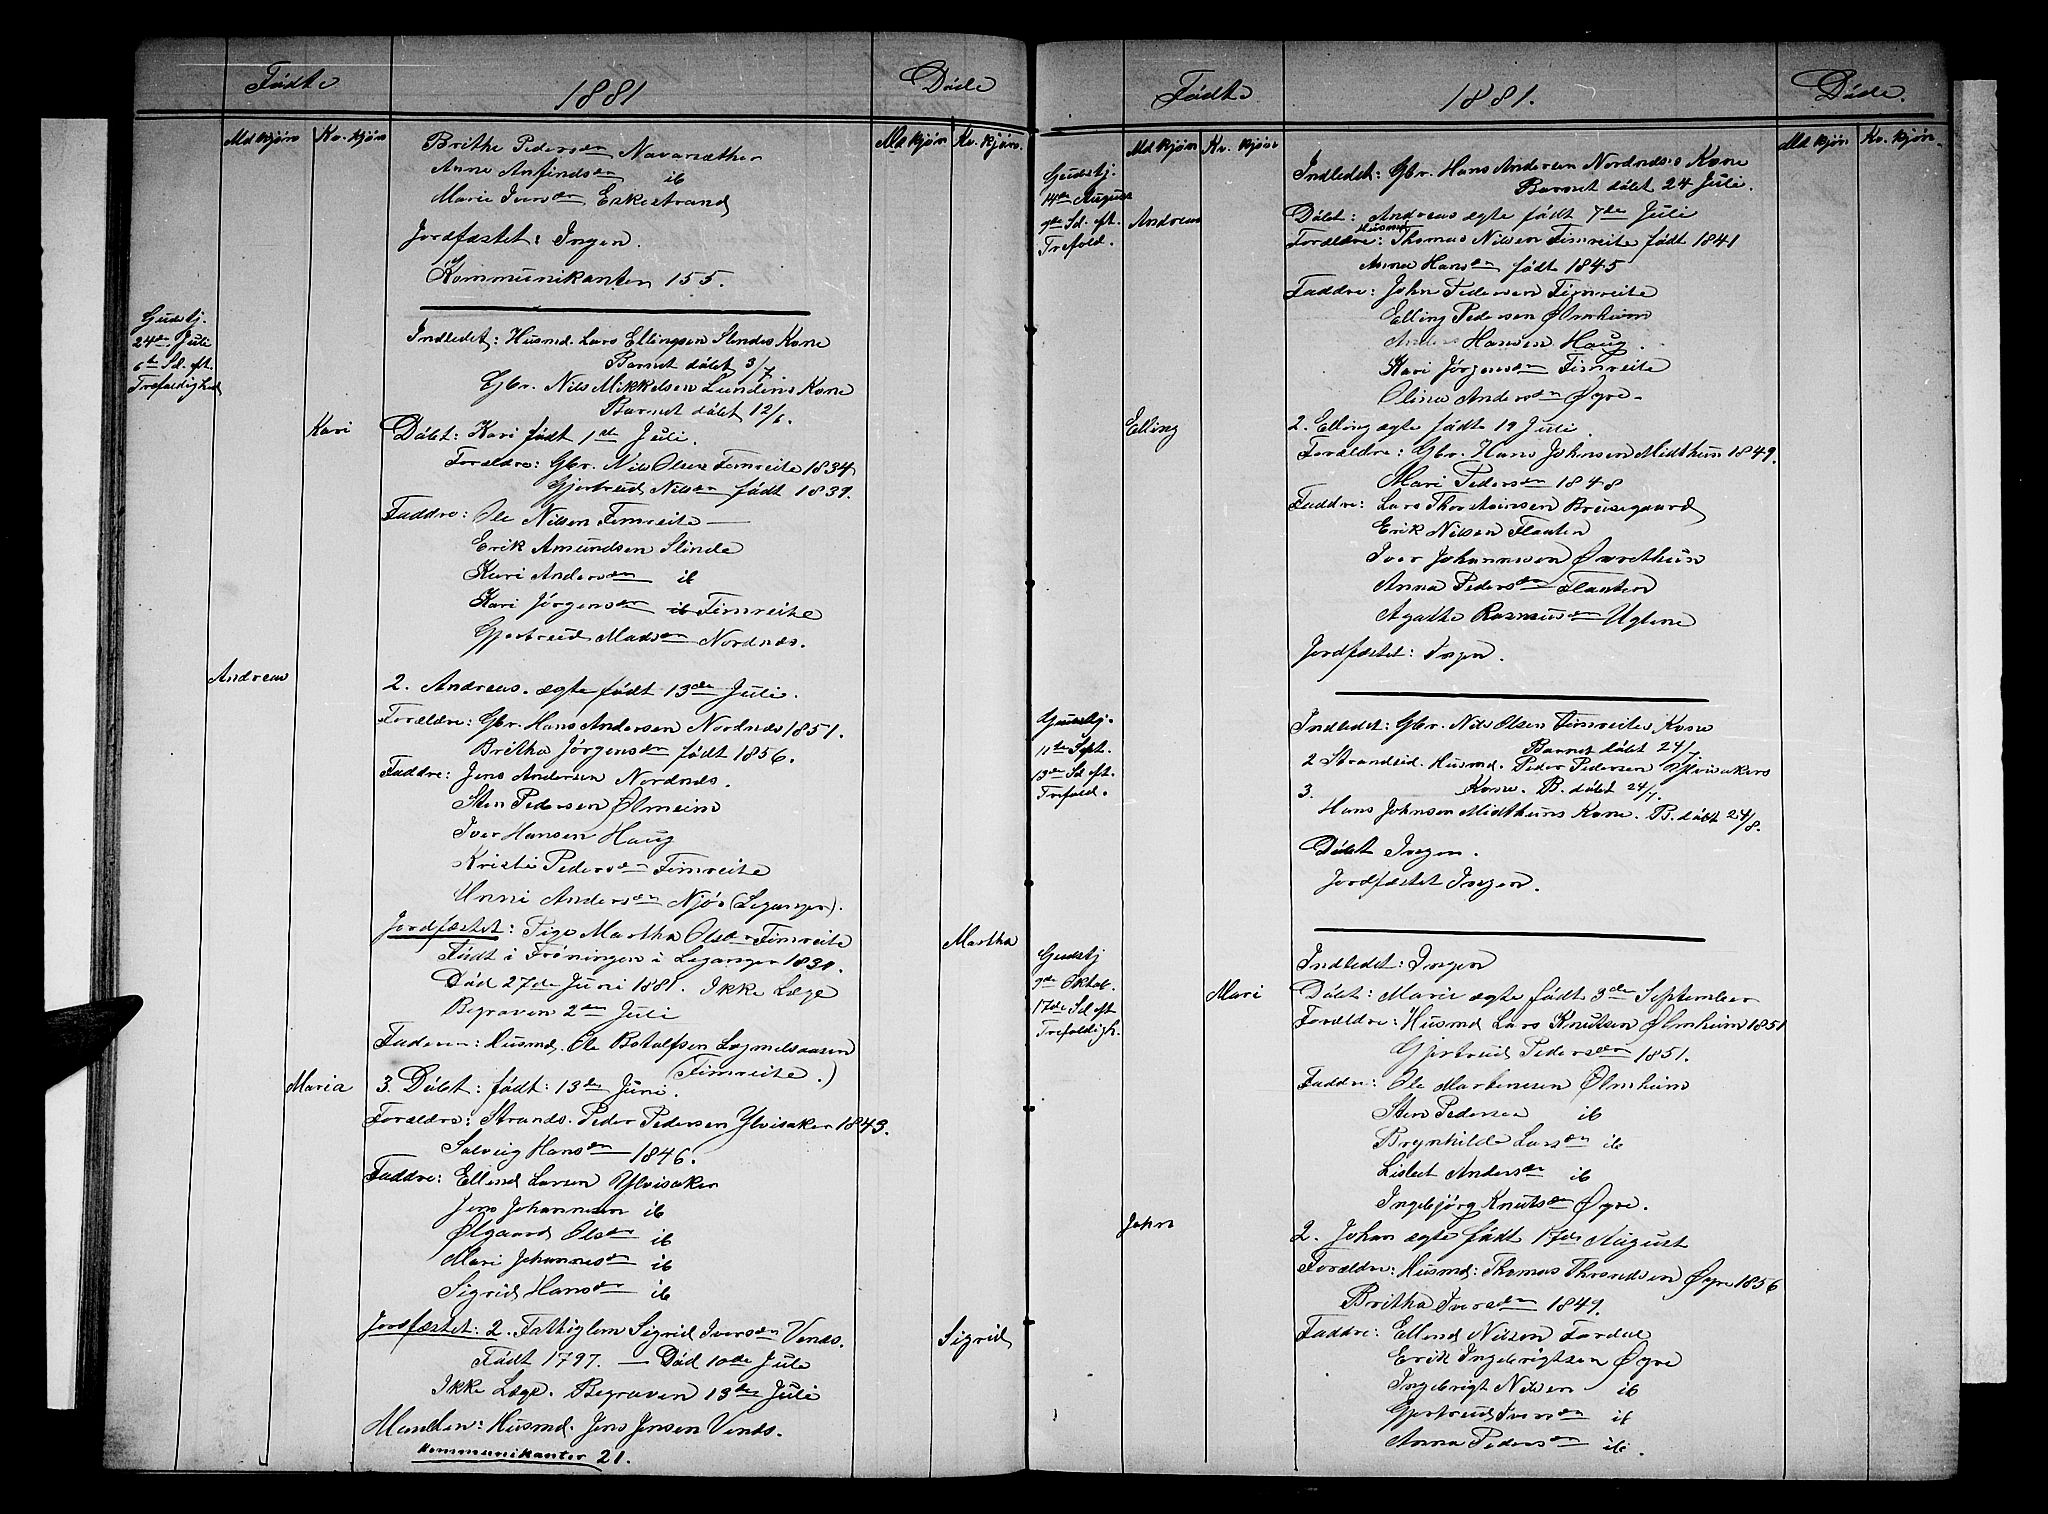 Fødte 1881 Døde
Mdkjøn Kv. kjøn Md kjøn Kv. kjøn
Brithe Pedersdr Navarsæther
Anne Anfindsdr ib
Marie Iversdr Eskestrand
Jordfæstet: Ingen.
Kommunikanter 155.
Gudstj.
24de Juli
6te Sd. eft.
Trefoldighed
Indledet: Husmd. Lars Ellingsen Slindes Kone
Barnet døbt 3/7.
Gbr. Nils Mikkelsen Lundens Kone
Barnet døbt 12/6.
Kari Døbt: Kari født 1ste Juli.
Forældre: Gbr. Nils Olsen Fimreite 1834
Gjertrud Nilsdr født 1839.
Faddre: Ole Nilsen Fimreite
Erik Amundsen Slinde
Kari Andersdr ib
Kari Jørgensdr ib Fimreite
Gjertrud Madsdr Nordnæs.
Andreas 2. Andreas. ægte født 13de Juli.
Forældre: Gbr. Hans Andersen Nordnæs 1851.
Britha Jørgensdr født 1856.
Faddre: Jens Andersen Nordnæs.
Sten Pedersen Ølmeim
Iver Hansen Haug
Kristi Pedersdr Fimreite
Unni Andersdr Njøs (Leganger).
Jordfæstet: Pige Martha Olsdr Fimreite Martha
Født i Frøningen i Leganger 1830.
Død 27de Juni 1881. Ikke Læge
Begraven 2den Juli
Faderen: Husmd. Ole Botolfsen Lægmelsaasen
(Fimreite.)
Maria 3. Døbt: født: 13de Juni.
Forældre: Strands. Peder Pedersen Ylvisaker 1843.
Solveig Hansdr 1846.
Faddre: Ellend Larsen Ylvisaker
Jens Johannesen ib
Ølgaard Olsdr ib
Mari Johannesdr ib
Sigrid Hansdr ib
Jordfæstet: 2. Fattiglem Sigrid Iversdr Venås. Sigrid
Født 1797. — Død 10de Jule
Ikke Læge. Begraven 13de Juli
Manden: Husmd. Jens Jensen Venås.
Kommunikanter 21.
Fødte 1881. Døde.
Md kjøn Kv. kjøn Md kjøn Kv. kjøn.
Gudstj.
14de August
9de Sd. eft.
Trefold.
Indledet: Gbr. Hans Andersen Nordnæs's Kone
Barnet døbt 24 Juli.
Andreas Døbt: Andreas ægte født 7de Juli
Forældre: Husmd Thomas Nilsen Fimreite født 1841
Anna Hansdr født 1845
Faddre: John Pedersen Fimreite
Elling Pedersen Ølmheim
Anders Hansen Haug.
Kari Jørgensdr Fimreite
Olina Andersdr Øyre
Elling 2. Elling ægte fødte 19 Juli.
Forældre: Gbr. Hans Johnsen Midthun 1849.
Mari Pedersdr 1848
Faddre: Lars Thorsteinsen Breisegaard
Erik Nilsen Flaaten
Iver Johannesen Øvrethun
Anna Pedersdr Flaaten
Agathe Rasmusdr Uglene
Jordfæstet: Ingen.
Gudstj.
11te Sept.
13de Sd eft.
Trefold.
Indledet: Gbr. Nils Olsen Fimreites Kone
Barnet døbt 24/7
2 Strandsid. Husmd. Peder Pedersen Ylvisakers
Kone. B. døbt 24/7.
3. Hans Johnsen Midthuns Kone. B. døbt 24/8.
Døbt Ingen.
Jordfæstet Ingen.
Gudstj
9de Oktob.
17de Sd eft
Trefoldigh.
Indledet: Ingen
Mari Døbt: Marie ægte født 3de September
Forældre: Husmd Lars Knutsen Ølmheim 1851
Gjertrud Pedersdr 1851.
Faddre: Ole Martenesen Ølmheim
Sten Pedersen ib
Brynhilde Larsdr ib
Lisbet Andersdr ib
Ingebjørg Knutsdr Øyre.
John 2. Johan ægte født 17de August
Forældre: Husmd: Thomas Thronsen Øyre 1856
Britha Iversdr 1849.
Faddre: Ellend Nilsen Fardal
Erik Ingebrigtsen Øyre
Ingebrigt Nilsen ib
Gjertrud Iversdr ib
Anna Pedersdr ib.